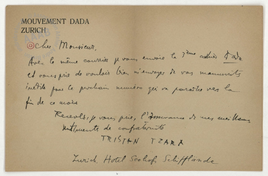 MOUVEMENT DADA
ZURICH
Cher Monsieur,
Avec le même courrier je vous envoie la 3ème Dada
et vous prie de vouloir bien m'envoyer de vos manuscrits
inédits pour le prochain numéro qui va paraître vers la
fin de ce mois
Recevez, je vous prie, l'assurance de mes meilleurs
sentiments de
TRISTAN TZARA
Zurich Hotel Seehof, Schifflände